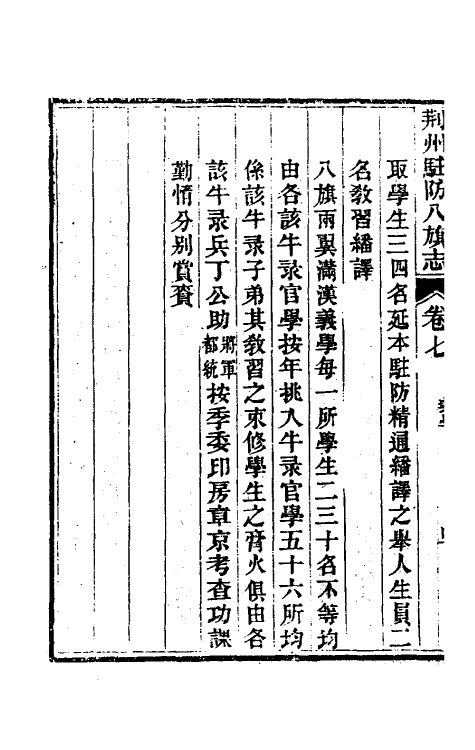 荆州駐防八旗志 卷七
取學生三四名延本駐防精通繙譯之舉人生員二
名敎習繙譯
八旗兩翼滿漢義學每一所學生二三十名不等均
由各該牛彔官學按年挑入牛彔官學五十六所均
係該牛彔子弟其敎習之束修學生之膏火俱由各
該牛彔兵丁公助將軍都統按季委印房章京考查功課
勤惰分别賞賚